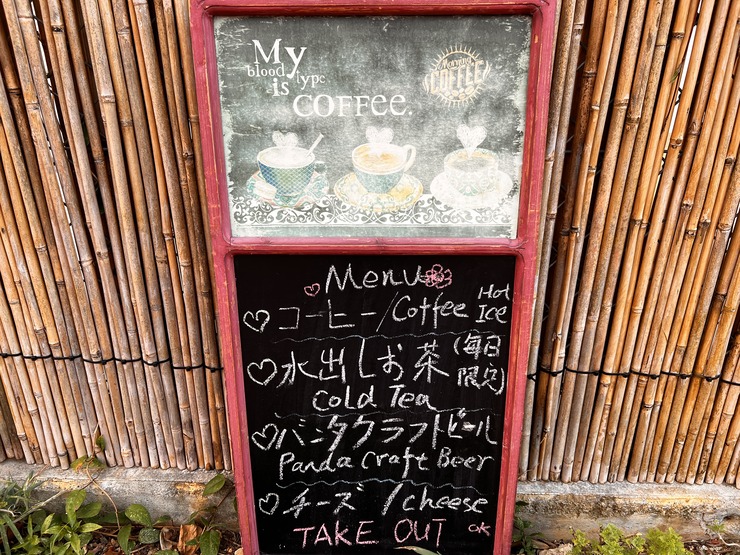 My
blood type
is
COFFEE.
Morning
COFFEE
Menu
コーヒー/Coffee Hot Ice
水出しお茶(毎日限定)
cold Tea
パンダクラフトビール
Panda craft Beer
チーズ/cheese
TAKE OUT OK